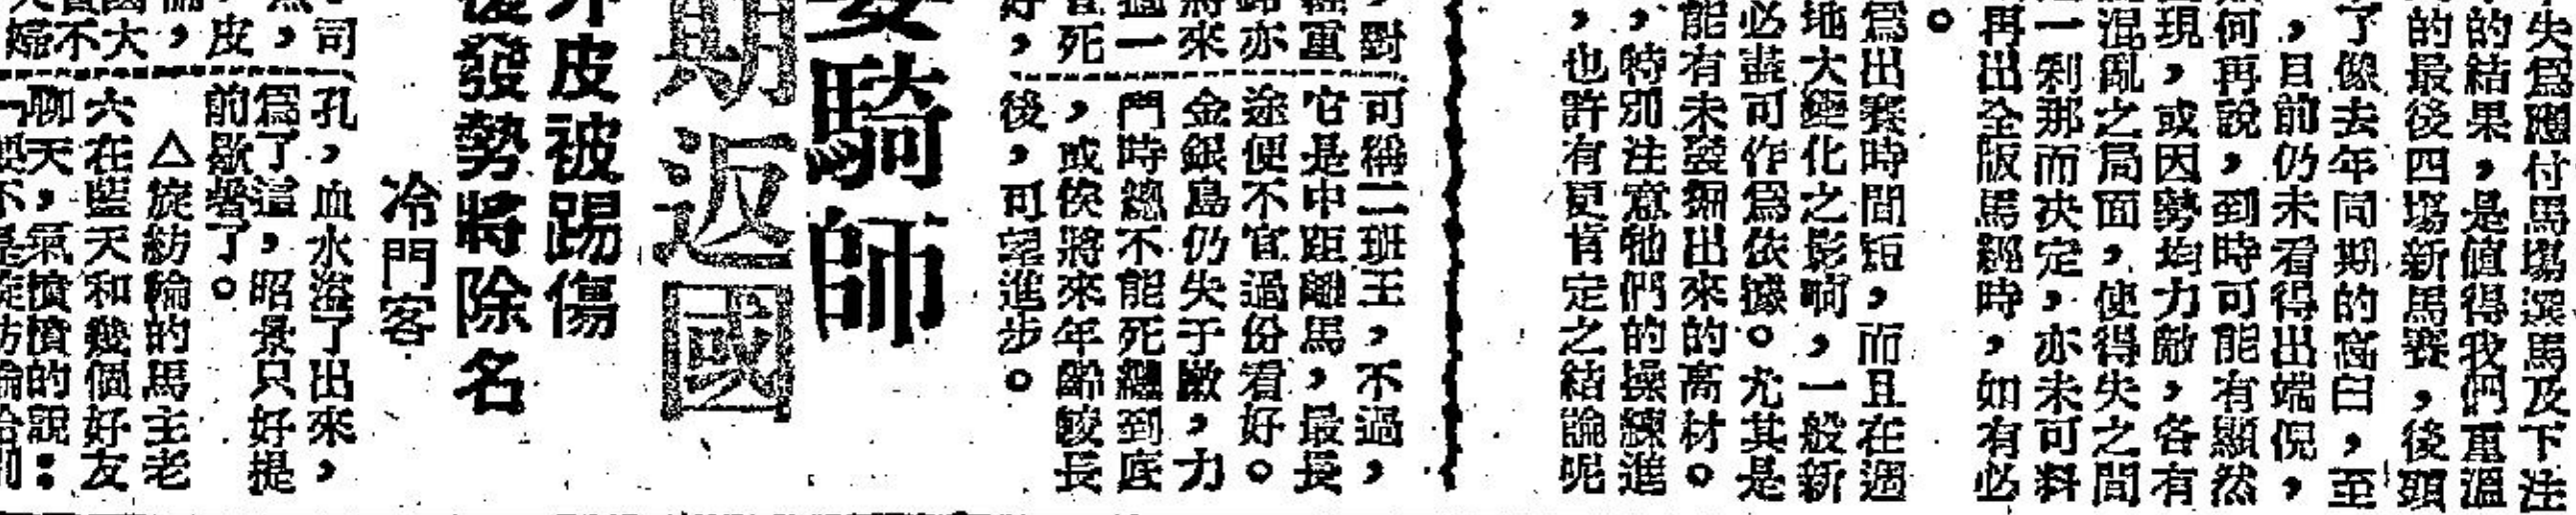 失爲應付馬塲選馬及下注
的結果，是值得我們重溫
的最後四塲新馬賽，後頭
了像去年同期的高白，至
，目前仍未看得出端倪，
何再說，到時可能有顯然
現，或因勢均力敵，各有
混亂之局面，使得失之間
一刹那而决定，亦未可料
再出全版馬經時，如有必
。
爲出賽時間短，而且在週
地大變化之影响，一般新
必盡可作爲依據。尤其是
能有未裝編出來的高材。
，特別注意牠們的操練進
，也許有更肯定之結論呢
，對
重
亦
將來
過一
死
好，
可稱二班王，不過，
它是中距離馬，最長
途便不宜過份看好。
金銀島仍失于敵，力
鬥時總不能死纏到底
，或俟將來年齡較長
後，可望進步。
騎師
期返國
皮被踢傷
發勢將除名
冷門客
司
，
皮
，
大
不
孔，血水溢了出來，
爲了這，昭景只好提
前歇暑了。
△旋紡輪的馬主老
六在藍天和幾個好友
聊天，氣憤憤的說：